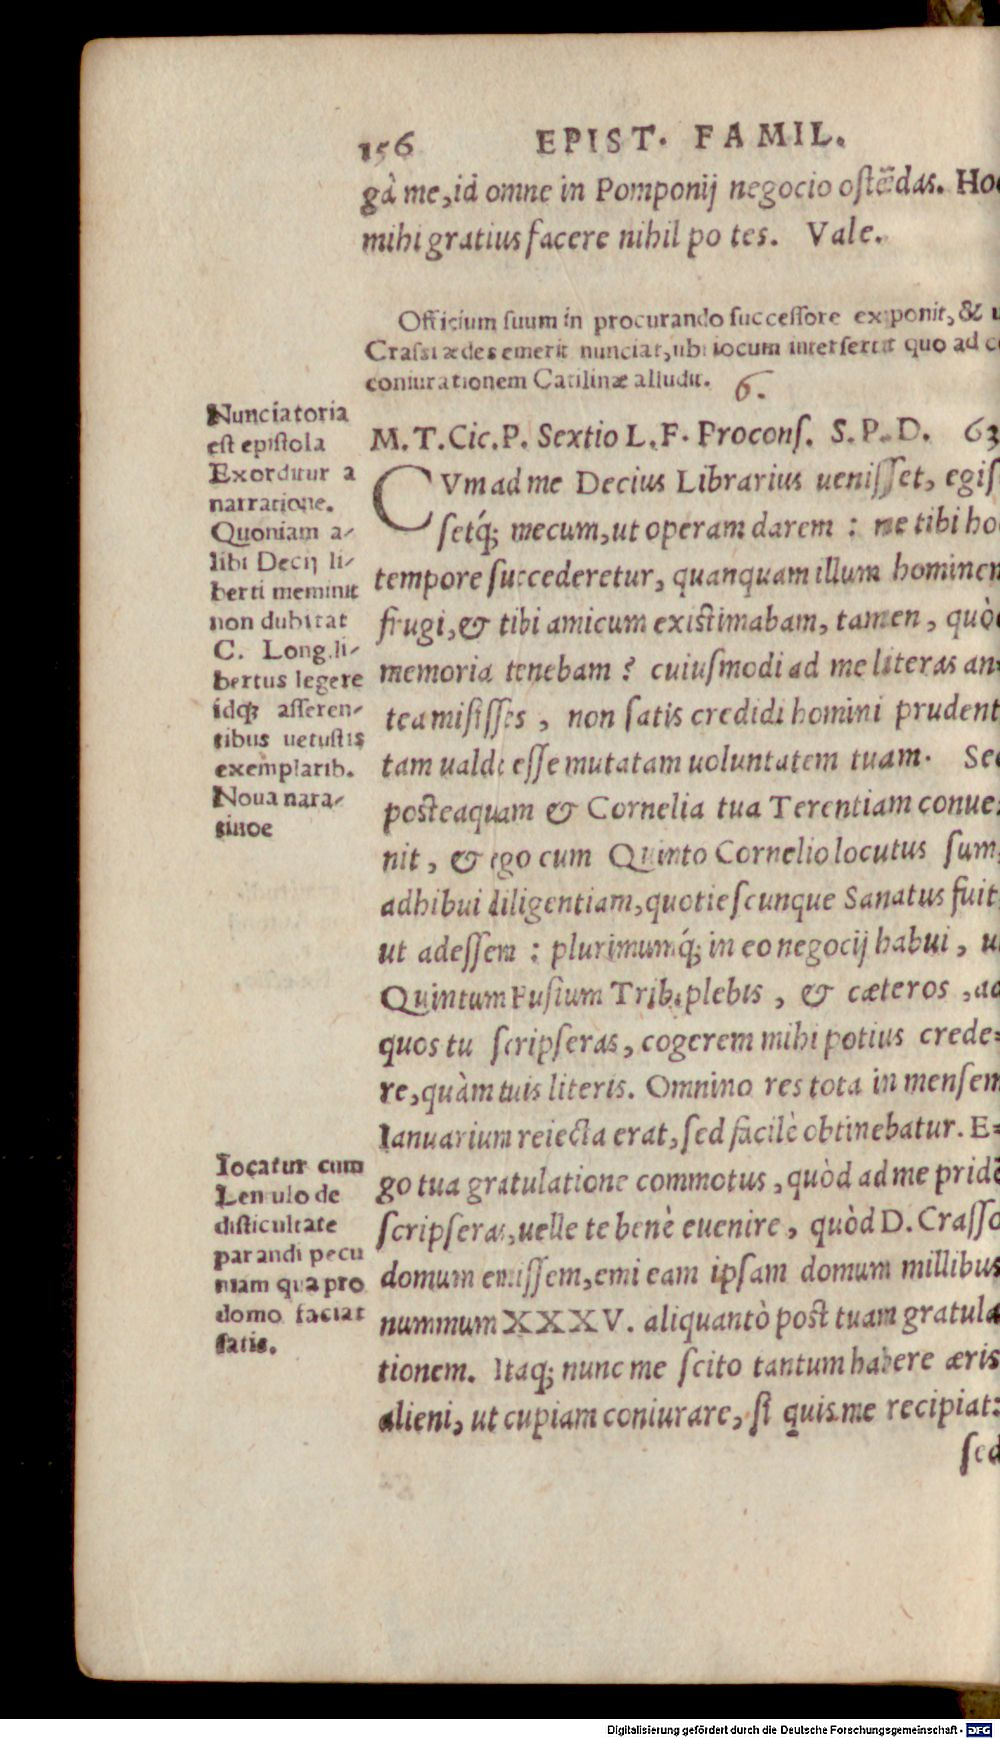 156 EPIST. FAMIL.
gà me, id omne in Pomponij negocio ostẽdas. Hoc
mihi gratius facere nihil po tes. Vale.
Officium suum in procurando successore exponit, &
Crassi ædes emerit nunciat, ubi iocum intersertit quo ad
coniurationem Catilinæ alludit. 6.
M. T. Cic. P. Sextio L. F. Procons. S. P. D. 63
CVm ad me Decius Librarius uenisset, egis-
setq́; mecum, ut operam darem : ne tibi hoc
tempore succederetur, quanquam illum hominem
frugi, & tibi amicum existimabam, tamen, quòd
memoria tenebam ? cuiusmodi ad me literas an=
tea misisses, non satis credidi homini prudent
tam ualde esse mutatam uoluntatem tuam. Sed
posteaquam & Cornelia tua Terentiam conue=
nit, & ego cum Quinto Cornelio locutus sum,
adhibui diligentiam, quotiescunque Sanatus fuit,
ut adessem : plurimumq́; in eo negocij habui, ut
Quintum Fusium Trib. plebis, & cæteros, ad
quos tu scripseras, cogerem mihi potius crede=
re, quàm tuis literis. Omnino res tota in mensem
Ianuarium reiecta erat, sed facilè obtinebatur. E=
go tua gratulatione commotus, quòd ad me pridẽ
scripseras, uelle te benè euenire, quòd D. Crasso
domum emissem, emi eam ipsam domum millibus
nummum XXXV. aliquantò post tuam gratula
tionem. Itaq; nunc me scito tantum habere æris
alieni, ut cupiam coniurare, si quis me recipiat:
sed
Nunciatoria
est epistola
Exorditur a
narratione.
Quoniam a-
libi Decij li-
berti meminit
non dubitat
C. Long. li-
bertus legere
idq; asseren-
tibus uetustis
exemplarib.
Noua nara-
tinoe
Iocatur cum
Lentulo de
disticultate
parandi pecu
niam qua pro
domo faciat
satis.
Digitalisierung gefördert durch die Deutsche Forschungsgemeinschaft - DFG